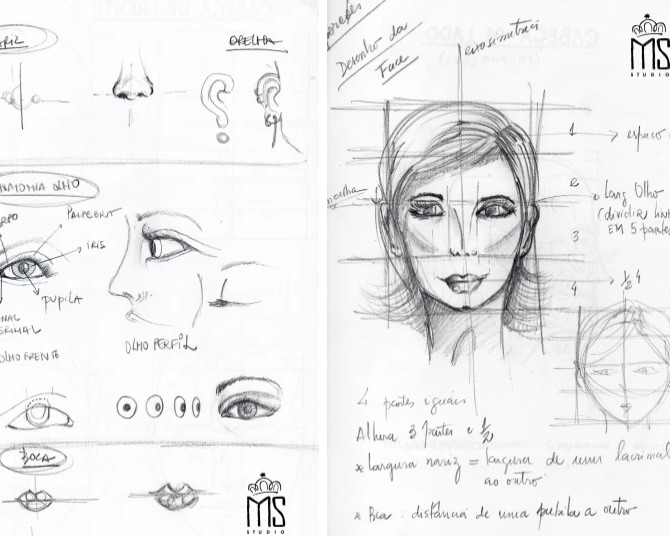 ORELHA
ANATOMIA OLHO
PALPEBRA
IRIS
PUPILA
OLHO FRENTE
OLHO PERFIL
BOCA
MS
STUDIO
Desenho da
Face
eixo simetrico
MS
STUDIO
1
espaço
2
Larg Olho
(dividir linha
EM 5 partes
3
4
1/2 4
4 partes iguais
Altura 3 partes e 1/2
* Largura nariz = largura de um lacrimal
ao outro
* Boca : distância de uma pupila a outro